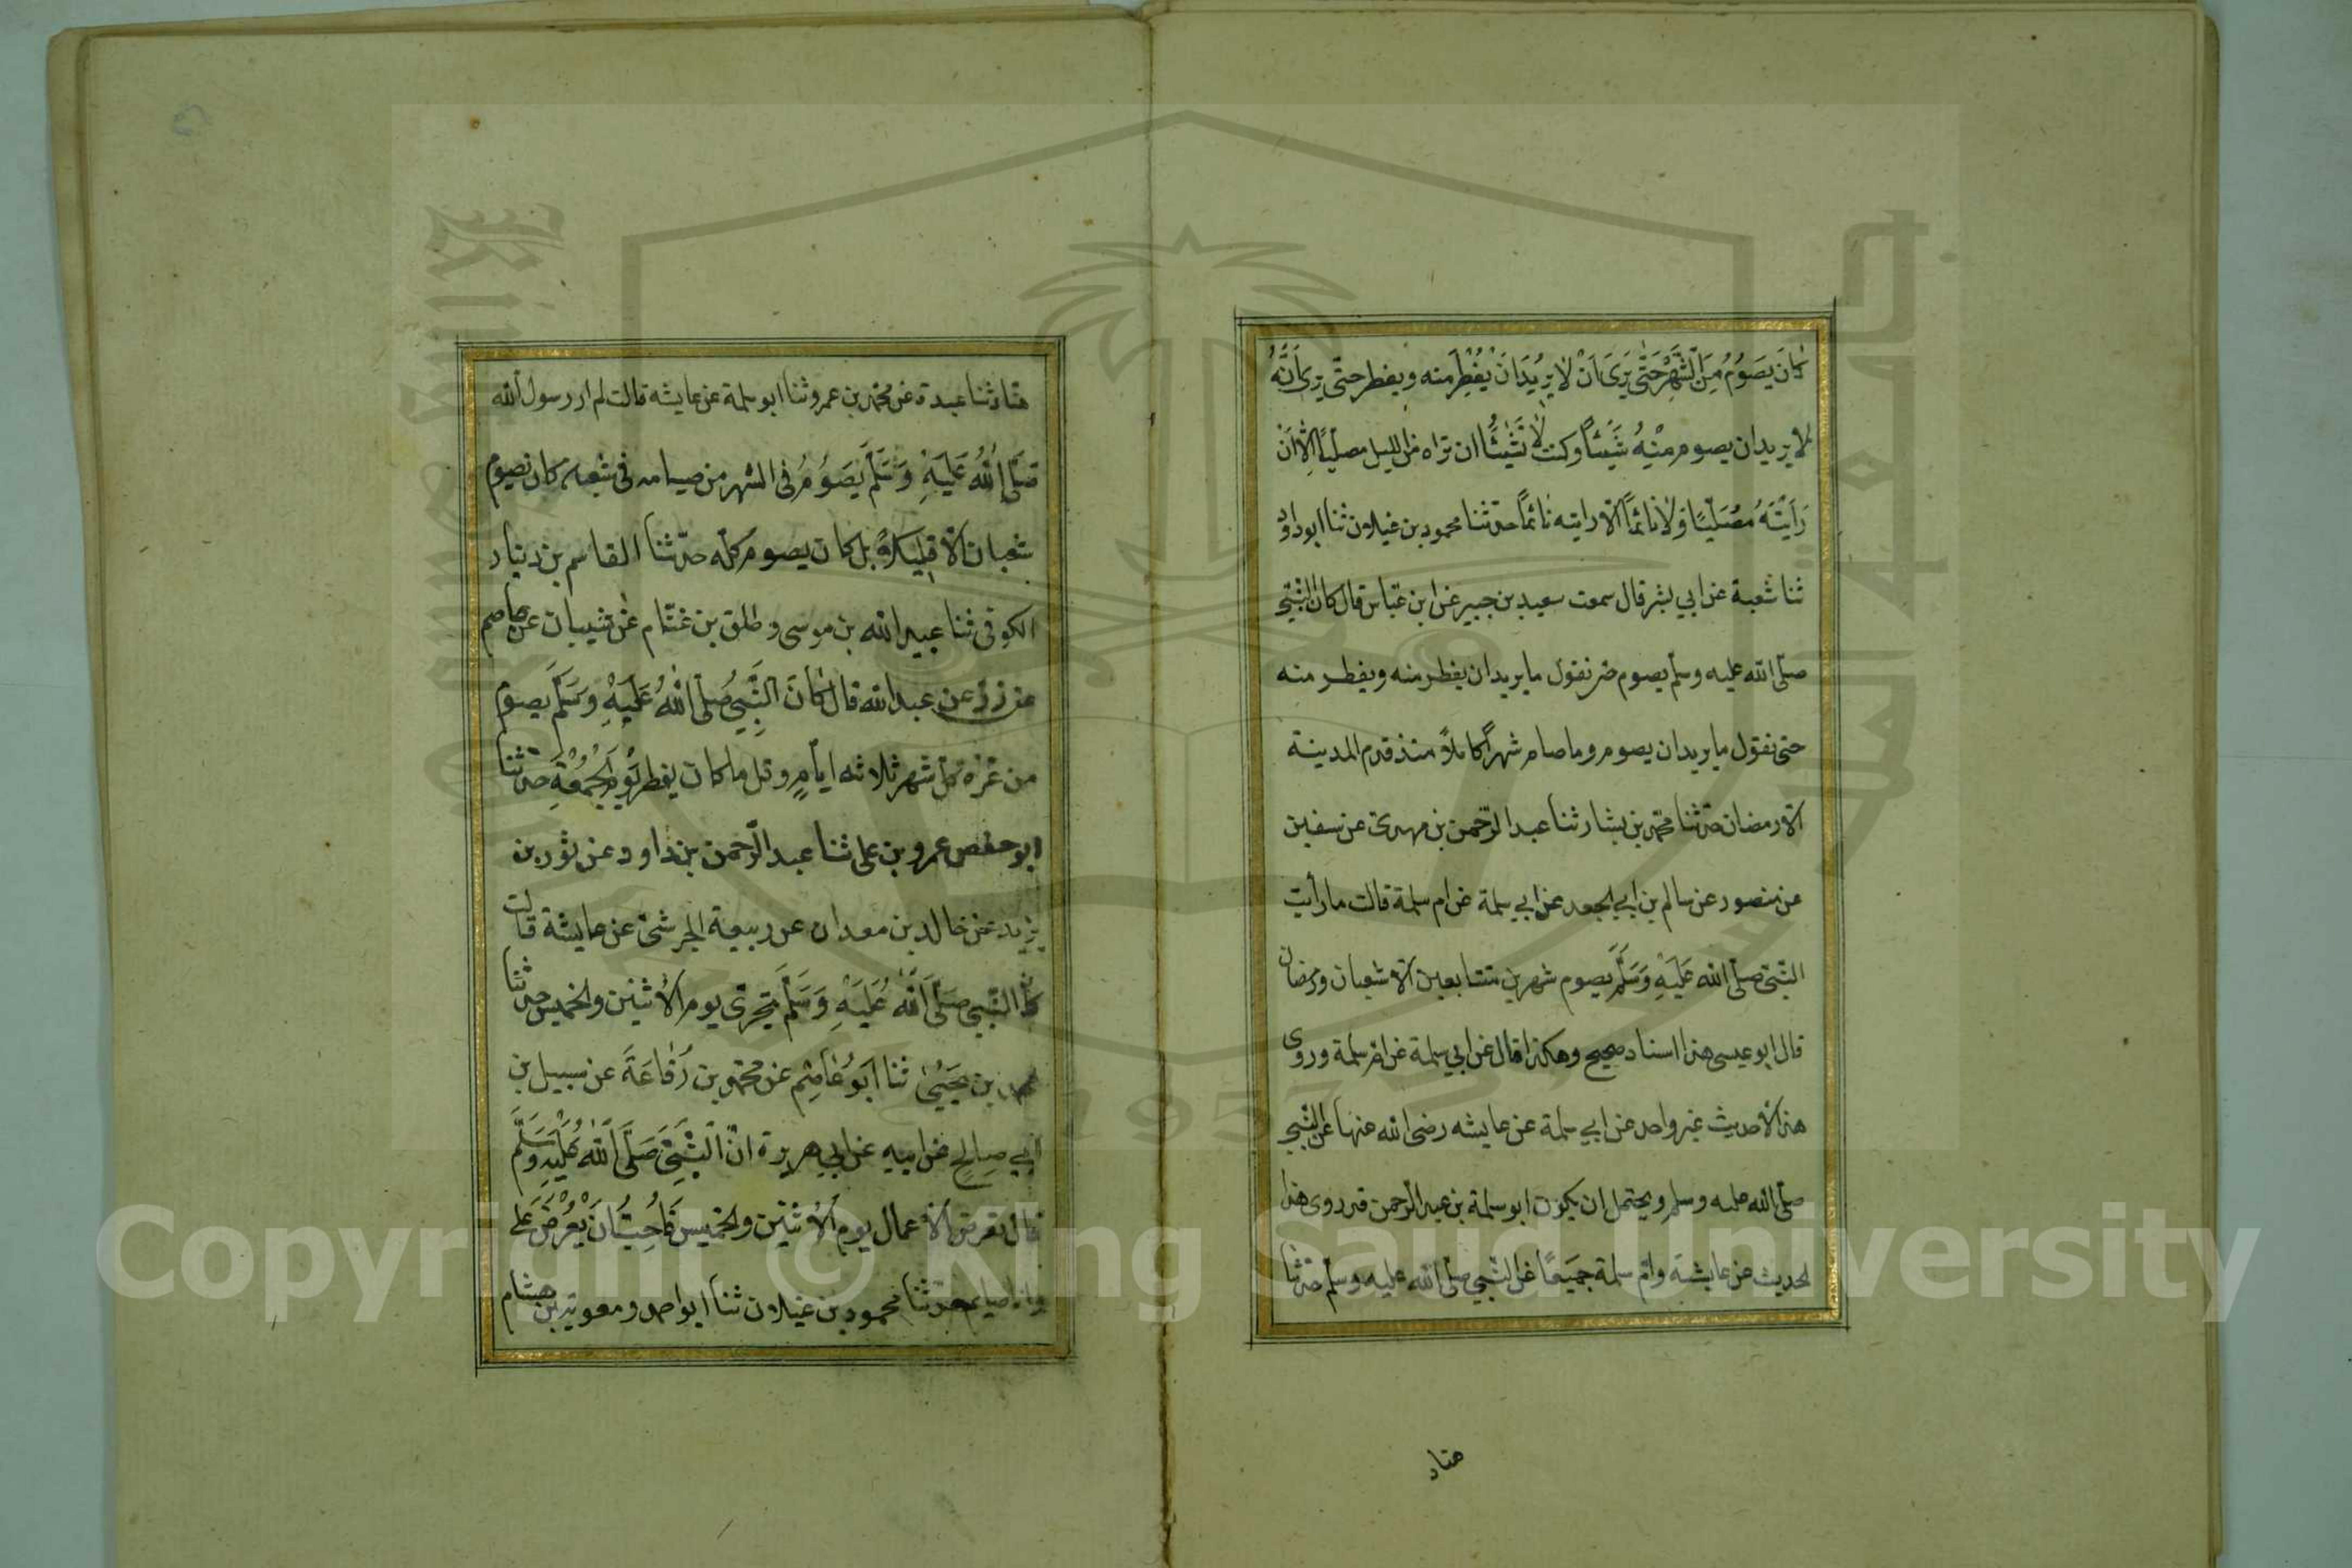 كَانَ يَصَوُمُ مِنَ الشَّهْرِ حَتّٰى يَرَىَ اَنْ لاٰ يُرِيُدَ اَنْ يُفْطِرَ منه ويفطر حتّى يرىَ اَنَّهُ
لا يريد ان يصوم مِنْهُ شَيْئاً وكنت لاٰ تَشٰٓاءُ ان تراه من الليل مصلّيًا اِلاّ اَنْ
رَاَيْتَهُ مُصَلّيًا وَلاٰ نَائمًا الاّ رايته نائمًا حدّثنا محمود بن غيلان ثنا ابو داود
ثنا شعبة عن ابي بشر قال سمعت سعيد بن جبير عن ابن عبّاس قال كان النبّي
صلّى الله عليه وسلّم يصوم حتى نقول ما يريد ان يفطر منه ويفطر منه
حتى نقول ما يريد ان يصوم وما صام شهراً كاملاً منذ قدم المدينة
الاّ رمضان حدّثنا محمّد بن بشار ثنا عبد الرّحمن بن مهدى عن سفين
عن منصور عن سالم بن ابي الجعد عن ابي سلمة عن ام سلمة قالت ما رأيت
النبّى صلّى الله عَلَيْهِ وَسَلَّمَ يصوم شهرين متتابعين الاّ شعبان ورمضان
قال ابو عيسى هذا اسناد صحيح وهكذا قال عن ابي سلمة عن ام سلمة وروى
هذا الأحديث غير واحد عن ابي سلمة عن عايشه رضى الله عنها عن النبّي
صلّى الله عليه وسلم ويحتمل ان يكون ابو سلمة بن عبد الرّحمن قد روى هذا
الحديث عن عايشة وامّ سلمة جميعًا عن النّبي صلّى الله عليه وسلّم حدّثنا
هناد
هنّاد ثنا عبدة عن محمّد بن عمرو ثنا ابو سلمة عن عايشه قالت لم ار رسول الله
صَلَّى اللهُ عَلَيْهِ وَسَلَّمَ يَصَوُمُ فى الشهر من صيامه فى شعبان كان يصوم
شعبان الاّ قليلاً بل كان يصوم كلّه حدّثنا القاسم بن دينار
الكوفى ثنا عبيد الله بن موسى وطلق بن غنّام عن شيبان عن عاصم
عن زرّ عن عبد الله قال كَانَ النَّبِيُّ صَلّى اللهُ عَلَيْهِ وَسَلَّمَ يصوم
من غرّة كلّ شهر ثلاثه ايّامٍ وقل ما كان يفطر يَوْمَ الْجُمُعَةِ حدّثنا
ابو حفص عمرو بن على ثنا عبد الرّحمن بن داود عن ثور بن
يزيد عن خالد بن معدان عن ربيعة الجرشىّ عن عايشة قالت
كان النّبي صَلَّى اللّٰهُ عَلَيْهِ وَسَلَّمَ يتحرّى يوم الأثنين والخميس حدّثنا
محمد بن يَحَيْىٰ ثنا ابَوُ عَاصِم عن محمّد بن رُفاعَةَ عن سهيل بن
ابي صالحٍ عن ابيهِ عن ابي هريرة انّ النَّبيَّ صَلَّى اللّٰهُ عَلَيْهِ وَسَلَّمَ
قال تعرض الأعمال يوم الأثنين والخميس فَاُحِبُّ اَنْ يُعْرَضَ عَملى
وانا صايم حدّثنا محمود بن غيلان ثنا ابو احمد ومعوية بن هشام
Copyright © King Saud University
1957